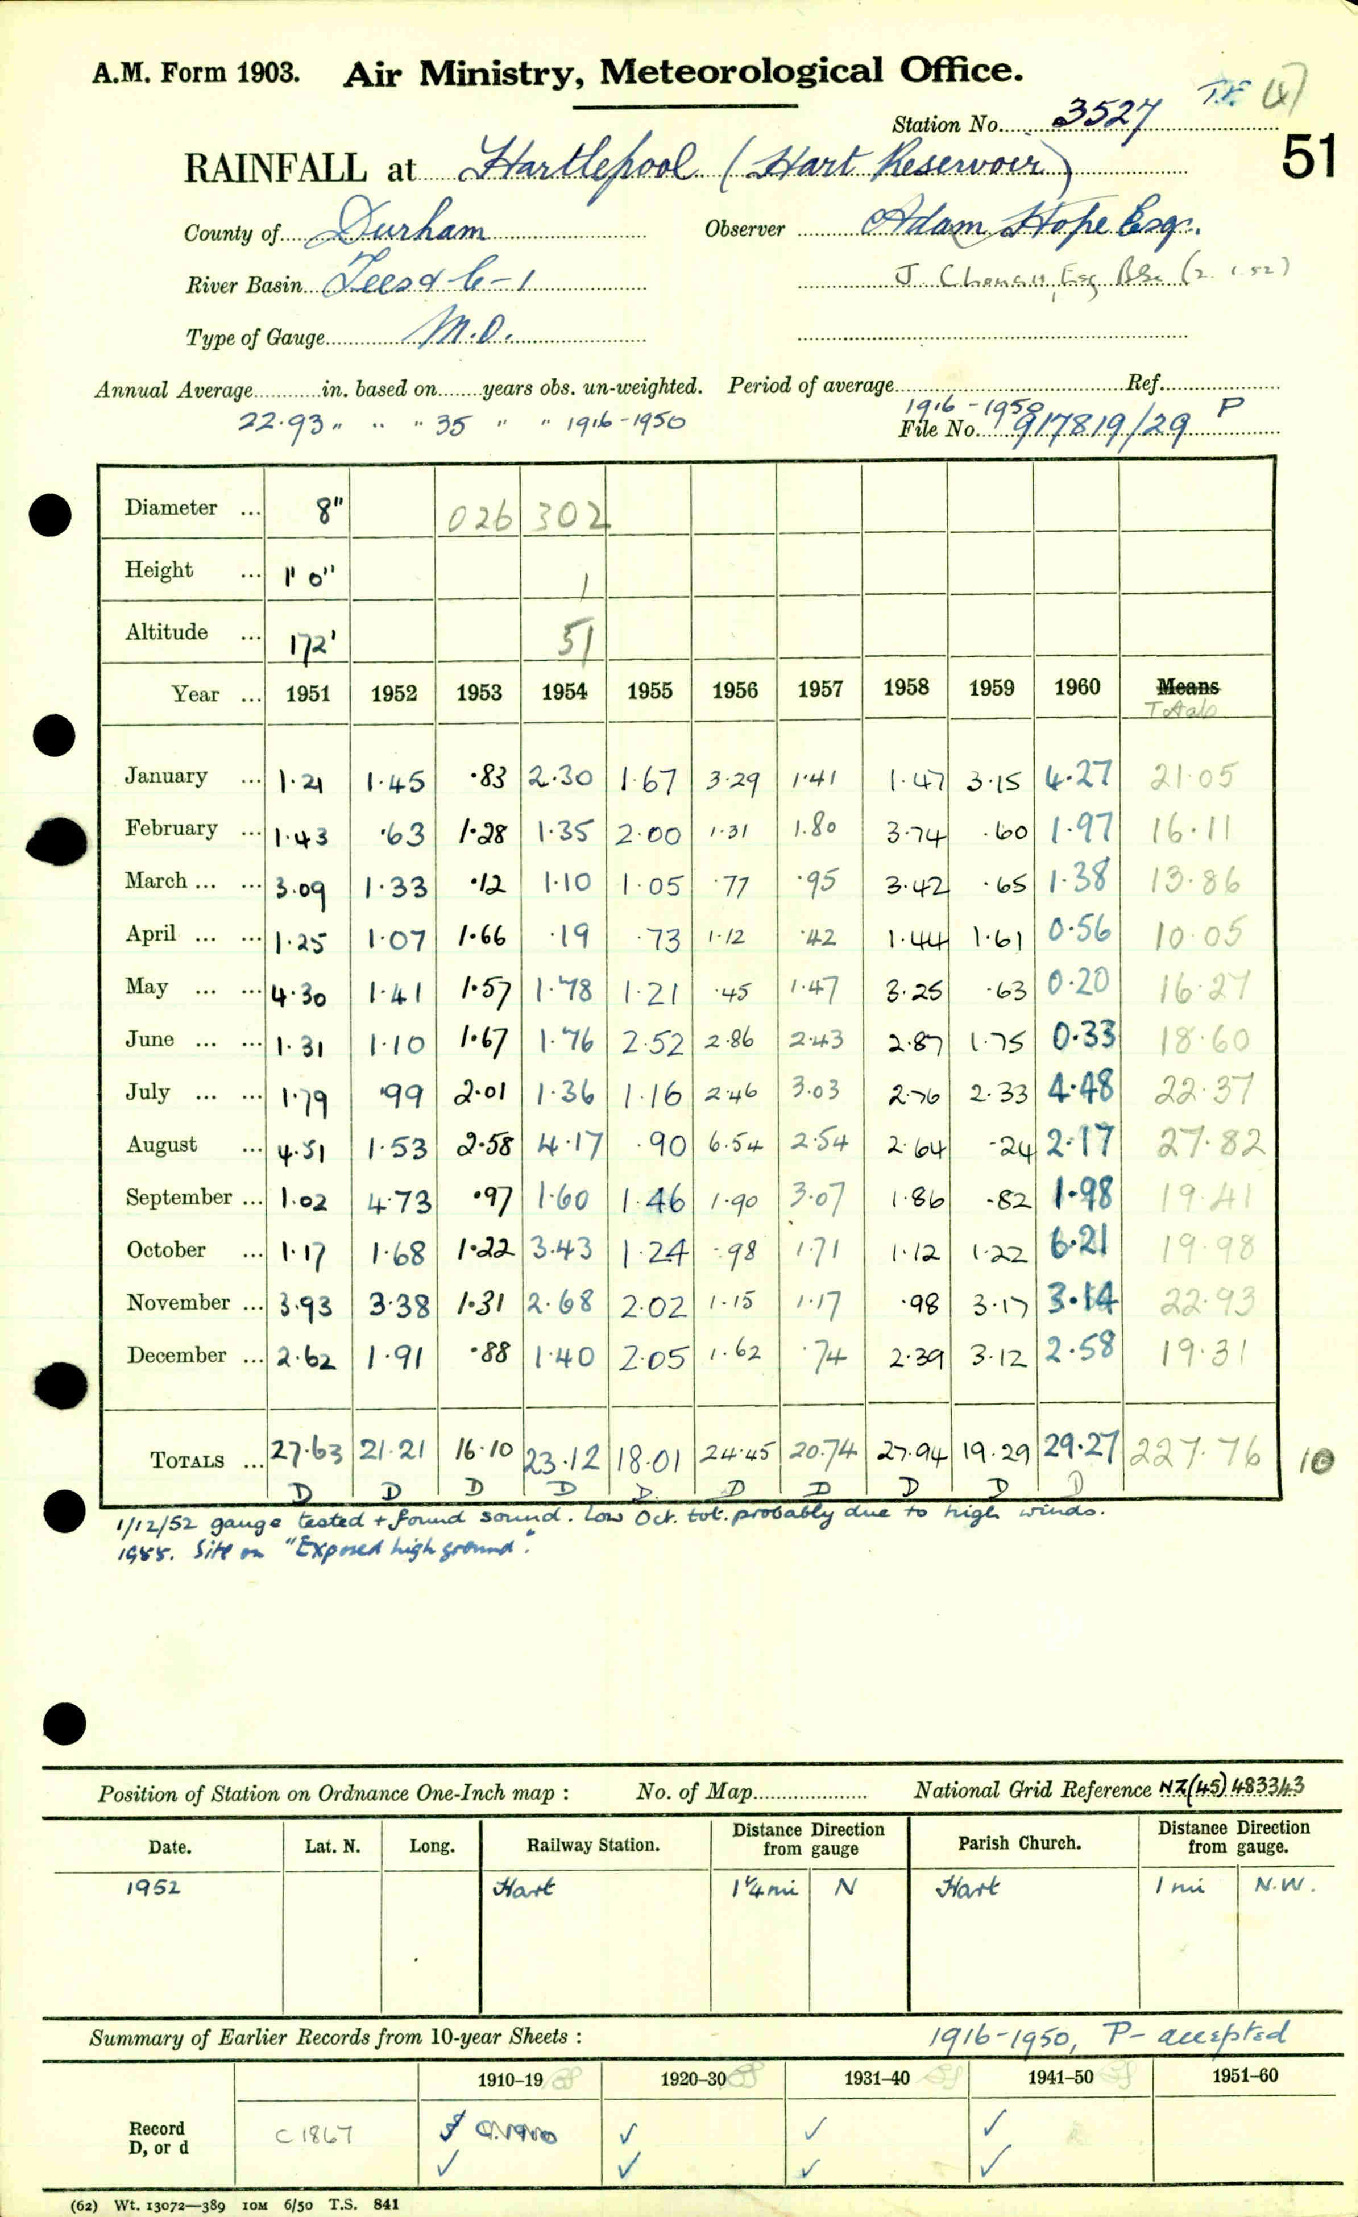 A.M. Form 1903. Air Ministry, Meteorological Office.
Station No. 3527
51
RAINFALL at Hartlepool (Hart Reservoir)
County of Durham Observer Adam Hope Esq.
River Basin Tees & C-1 J Esq BSc (2.1.52)
Type of Gauge M.O.
Annual Average in. based on years obs. un-weighted. Period of average 1916-1950 Ref. P
22.93 " " " 35 " " 1916-1950 File No. 917819/29
Diameter ... 8" 026 302
Height ... 1' 0" 1
Altitude ... 172' 51
Year ... 1951 1952 1953 1954 1955 1956 1957 1958 1959 1960 Means
Totals
January ... 1.21 1.45 .83 2.30 1.67 3.29 1.41 1.47 3.15 4.27 21.05
February ... 1.43 .63 1.28 1.35 2.00 1.31 1.80 3.74 .60 1.97 16.11
March ... ... 3.09 1.33 .12 1.10 1.05 .77 .95 3.42 .65 1.38 13.86
April ... ... 1.25 1.07 1.66 .19 .73 1.12 .42 1.44 1.61 0.56 10.05
May ... ... 4.30 1.41 1.57 1.78 1.21 .45 1.47 3.25 .63 0.20 16.27
June ... ... 1.31 1.10 1.67 1.76 2.52 2.86 2.43 2.87 1.75 0.33 18.60
July ... ... 1.79 .99 2.01 1.36 1.16 2.46 3.03 2.76 2.33 4.48 22.37
August ... 4.51 1.53 2.58 4.17 .90 6.54 2.54 2.64 .24 2.17 27.82
September ... 1.02 4.73 .97 1.60 1.46 1.90 3.07 1.86 .82 1.98 19.41
October ... 1.17 1.68 1.22 3.43 1.24 .98 1.71 1.12 1.22 6.21 19.98
November ... 3.93 3.38 1.31 2.68 2.02 1.15 1.17 .98 3.17 3.14 22.93
December ... 2.62 1.91 .88 1.40 2.05 1.62 .74 2.39 3.12 2.58 19.31
TOTALS ... 27.63 21.21 16.10 23.12 18.01 24.45 20.74 27.94 19.29 29.27 227.76 10
D D D D D D D D D D
1/12/52 gauge tested + found sound. Low Oct. tot. probably due to high winds.
1955. Site on "Exposed high ground".
Position of Station on Ordnance One-Inch map : No. of Map National Grid Reference NZ(45) 483343
Date. Lat. N. Long. Railway Station. Distance Direction from gauge Parish Church. Distance Direction from gauge.
1952 Hart 1¼ mi N Hart 1 mi N.W.
Summary of Earlier Records from 10-year Sheets : 1916-1950, P- accepted
1910–19 1920–30 1931–40 1941–50 1951–60
Record
D, or d C1867
(62) Wt. 13072—389 10M 6/50 T.S. 841